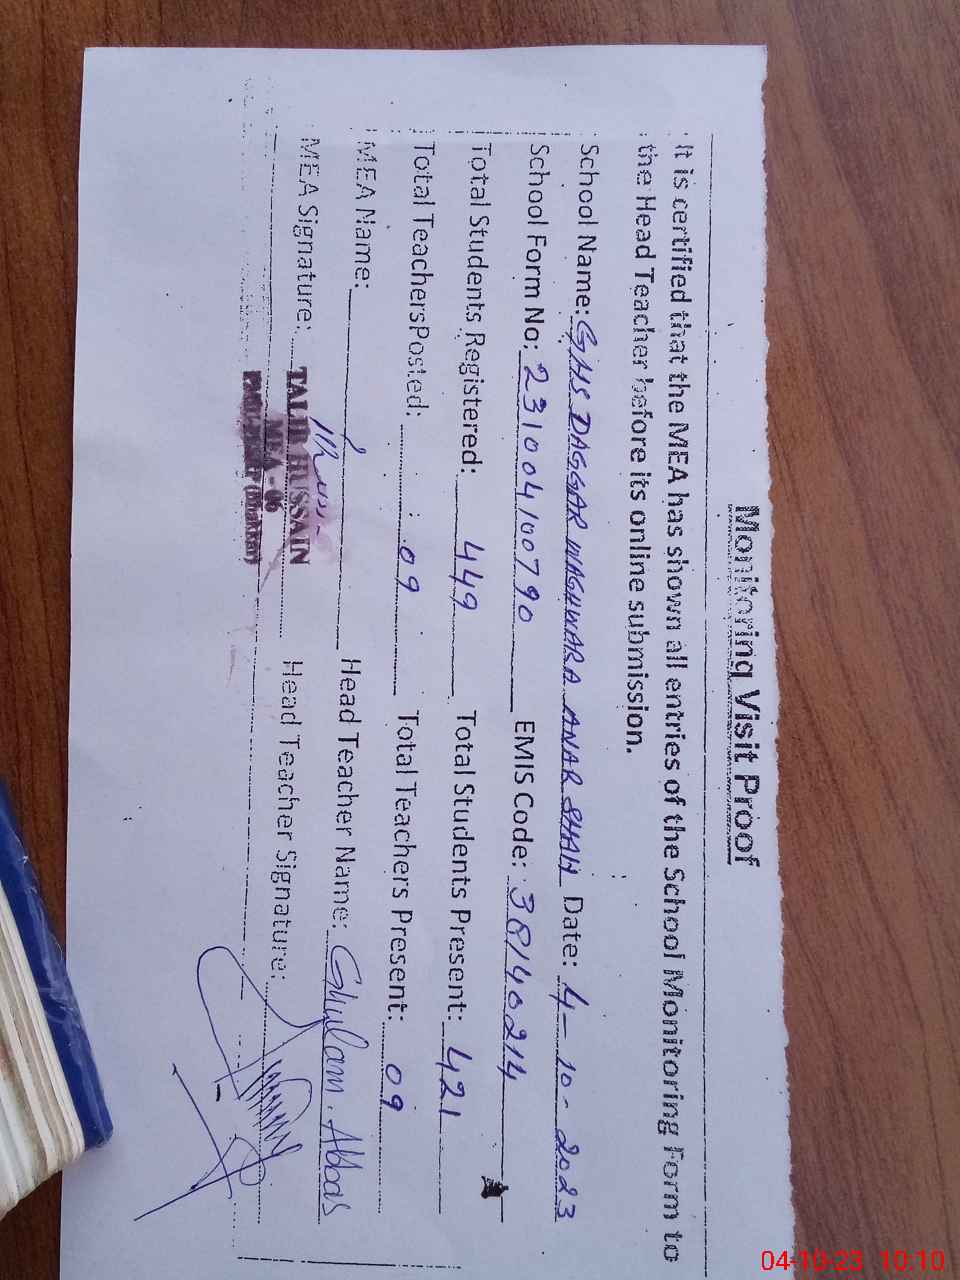 Monitoring Visit Proof
It is certified that the MEA has shown all entries of the School Monitoring Form to
the Head Teacher before its online submission.
School Name: GHS DAGGAR WAGHWARA ANAR SHAH Date: 4-10-2023
School Form No: 231004100790 EMIS Code: 38140214
Total Students Registered: 449 Total Students Present: 421
Total TeachersPosted: 09 Total Teachers Present: 09
MEA Name: Head Teacher Name: Ghulam Abbas
MEA Signature: Head Teacher Signature:
TALIB HUSSAIN
MEA - 06
(Bhakkar)
04-10-23 10:10